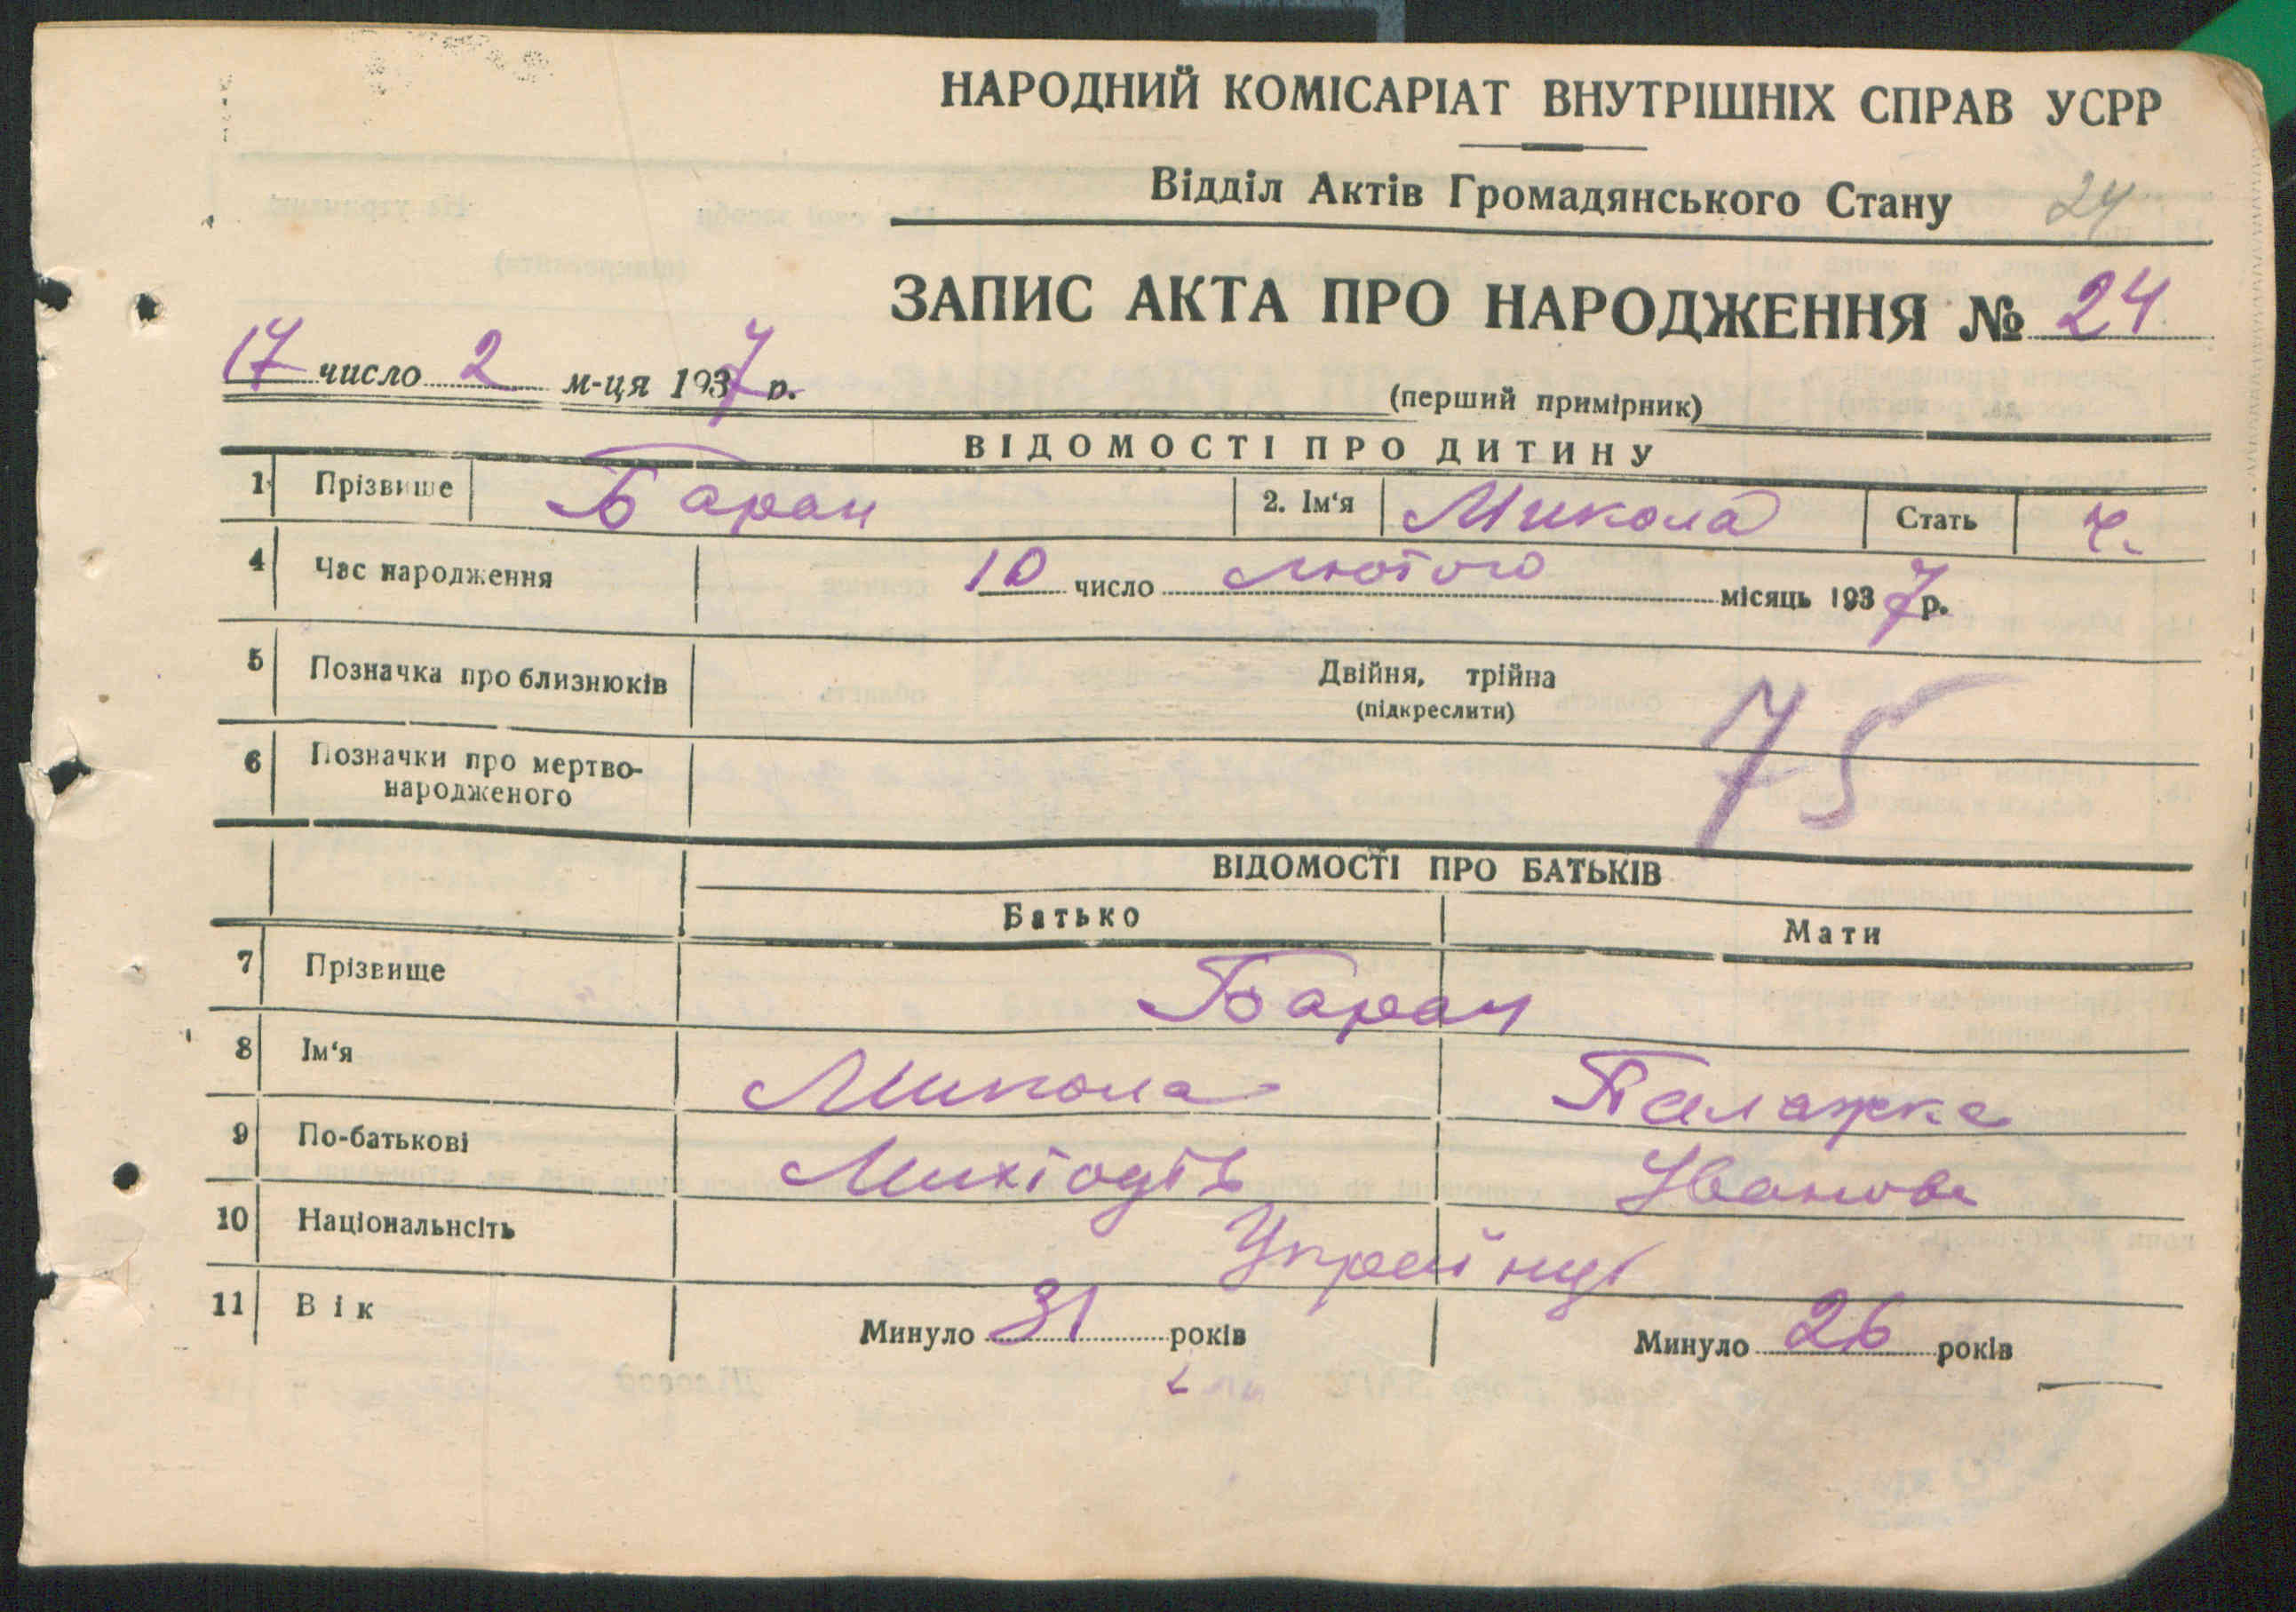 НАРОДНИЙ КОМІСАРІАТ ВНУТРІШНІХ СПРАВ УСРР
Відділ Актів Громадянського Стану 24
ЗАПИС АКТА ПРО НАРОДЖЕННЯ № 24
17 число 2 м-ця 1937 р.
(перший примірник)
ВІДОМОСТІ ПРО ДИТИНУ
1 Прізвище Баран 2. Ім‘я Микола Стать ч.
4 Час народження 10 число лютого місяць 1937 р.
5 Позначка про близнюків Двійня, трійна
(підкреслити)
75
6 Позначки про мертво-
народженого
ВІДОМОСТІ ПРО БАТЬКІВ
Батько Мати
7 Прізвище Баран
8 Ім‘я Микола Палажка
9 По-батькові Іванов
10 Національнсіть Українці
11 Вік Минуло 31 років Минуло 26 років